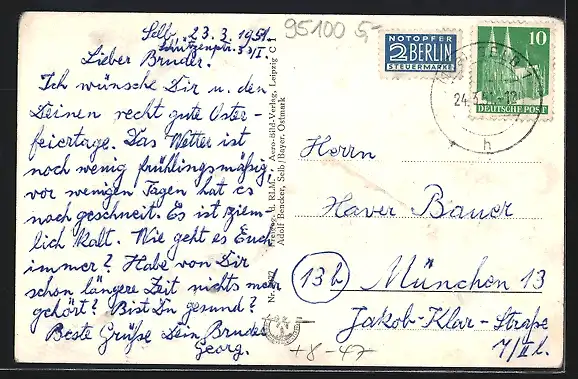 Selb, 23.3.1951.
Schützenstr. 3 3/I.
Lieber Bruder!
Ich wünsche Dir u. den
Deinen recht gute Oster-
feiertage. Das Wetter ist
noch wenig frühlingsmäßig,
vor wenigen Tagen hat es
noch geschneit. Es ist ziem-
lich kalt. Wie geht es Euch
immer? Habe von Dir
schon längere Zeit nichts mehr
gehört? Bist Du gesund?
Beste Grüße Dein Bruder
Georg.
95100 5,-
NOTOPFER
2 BERLIN
STEUERMARKE
10
DEUTSCHE POST
24.3.
h
Aero-Bild-Verlag, Leipzig C
Adolf Bencker, Selb/Bayer. Ostmark
Herrn
Xaver Bauer
(13b) München 13
Jakob-Klar-Straße
7/II l.
+8-47